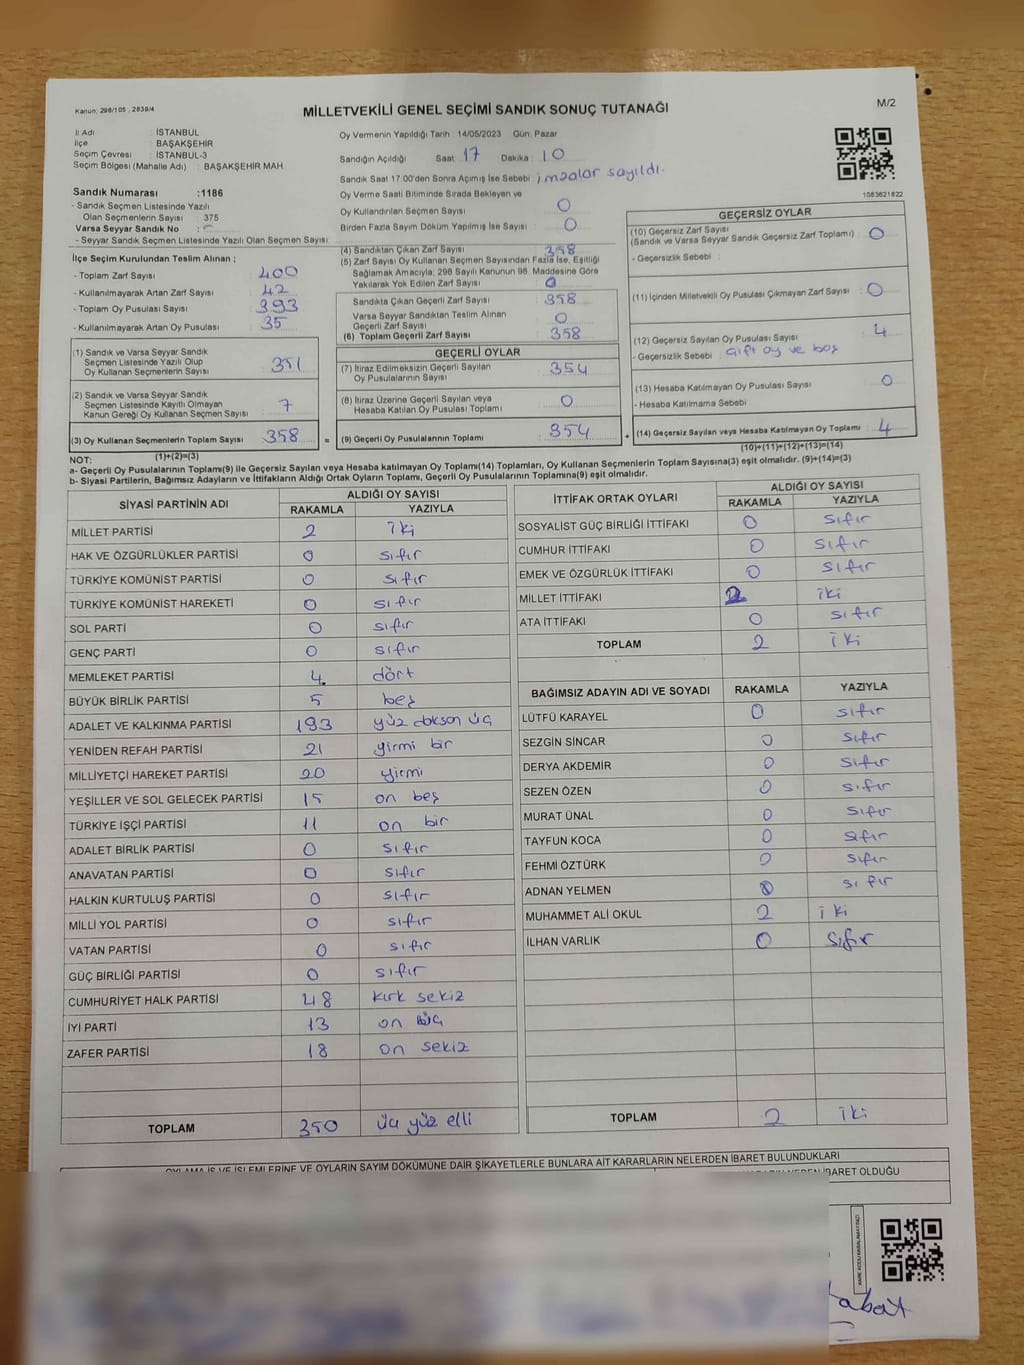 Kanun: 298/105 , 2839/4
MİLLETVEKİLİ GENEL SEÇİMİ SANDIK SONUÇ TUTANAĞI
M/2
İl Adı : İSTANBUL
İlçe : BAŞAKŞEHİR
Seçim Çevresi : İSTANBUL-3
Seçim Bölgesi (Mahalle Adı) : BAŞAKŞEHİR MAH.
Sandık Numarası :1186
- Sandık Seçmen Listesinde Yazılı
Olan Seçmenlerin Sayısı : 375
Varsa Seyyar Sandık No :
- Seyyar Sandık Seçmen Listesinde Yazılı Olan Seçmen Sayısı:
İlçe Seçim Kurulundan Teslim Alınan ;
- Toplam Zarf Sayısı : 400
- Kullanılmayarak Artan Zarf Sayısı : 42
- Toplam Oy Pusulası Sayısı : 393
- Kullanılmayarak Artan Oy Pusulası : 35
(1) Sandık ve Varsa Seyyar Sandık
Seçmen Listesinde Yazılı Olup
Oy Kullanan Seçmenlerin Sayısı : 351
(2) Sandık ve Varsa Seyyar Sandık
Seçmen Listesinde Kayıtlı Olmayan
Kanun Gereği Oy Kullanan Seçmen Sayısı : 7
(3) Oy Kullanan Seçmenlerin Toplam Sayısı : 358 =
(1)+(2)=(3)
Oy Vermenin Yapıldığı Tarih : 14/05/2023 Gün: Pazar
Sandığın Açıldığı Saat : 17 Dakika : 10
Sandık Saat 17:00'den Sonra Açımış İse Sebebi : imzalar sayıldı.
Oy Verme Saati Bitiminde Sırada Bekleyen ve
Oy Kullandırılan Seçmen Sayısı : 0
Birden Fazla Sayım Döküm Yapılmış İse Sayısı : 0
(4) Sandıktan Çıkan Zarf Sayısı : 358
(5) Zarf Sayısı Oy Kullanan Seçmen Sayısından Fazla İse, Eşitliği
Sağlamak Amacıyla, 298 Sayılı Kanunun 98. Maddesine Göre
Yakılarak Yok Edilen Zarf Sayısı : 0
Sandıkta Çıkan Geçerli Zarf Sayısı : 358
Varsa Seyyar Sandıktan Teslim Alınan
Geçerli Zarf Sayısı : 0
(6) Toplam Geçerli Zarf Sayısı : 358
GEÇERLİ OYLAR
(7) İtiraz Edilmeksizin Geçerli Sayılan
Oy Pusulalarının Sayısı : 354
(8) İtiraz Üzerine Geçerli Sayılan veya
Hesaba Katılan Oy Pusulası Toplamı : 0
(9) Geçerli Oy Pusulalarının Toplamı : 354 +
1083621822
GEÇERSİZ OYLAR
(10) Geçersiz Zarf Sayısı
(Sandık ve Varsa Seyyar Sandık Geçersiz Zarf Toplamı) : 0
- Geçersizlik Sebebi :
(11) İçinden Milletvekili Oy Pusulası Çıkmayan Zarf Sayısı : 0
(12) Geçersiz Sayılan Oy Pusulası Sayısı : 4
- Geçersizlik Sebebi : Çift oy ve boş
(13) Hesaba Katılmayan Oy Pusulası Sayısı : 0
- Hesaba Katılmama Sebebi
(14) Geçersiz Sayılan veya Hesaba Katılmayan Oy Toplamı : 4
(10)+(11)+(12)+(13)=(14)
NOT:
a- Geçerli Oy Pusulalarının Toplamı(9) ile Geçersiz Sayılan veya Hesaba katılmayan Oy Toplamı(14) Toplamları, Oy Kullanan Seçmenlerin Toplam Sayısına(3) eşit olmalıdır. (9)+(14)=(3)
b- Siyasi Partilerin, Bağımsız Adayların ve İttifakların Aldığı Ortak Oyların Toplamı, Geçerli Oy Pusulalarının Toplamına(9) eşit olmalıdır.
SİYASİ PARTİNİN ADI ALDIĞI OY SAYISI
RAKAMLA YAZIYLA
MİLLET PARTİSİ 2 iki
HAK VE ÖZGÜRLÜKLER PARTİSİ 0 sıfır
TÜRKİYE KOMÜNİST PARTİSİ 0 sıfır
TÜRKİYE KOMÜNİST HAREKETİ 0 sıfır
SOL PARTİ 0 sıfır
GENÇ PARTİ 0 sıfır
MEMLEKET PARTİSİ 4 dört
BÜYÜK BİRLİK PARTİSİ 5 beş
ADALET VE KALKINMA PARTİSİ 193 yüz doksan üç
YENİDEN REFAH PARTİSİ 21 yirmi bir
MİLLİYETÇİ HAREKET PARTİSİ 20 yirmi
YEŞİLLER VE SOL GELECEK PARTİSİ 15 on beş
TÜRKİYE İŞÇİ PARTİSİ 11 on bir
ADALET BİRLİK PARTİSİ 0 sıfır
ANAVATAN PARTİSİ 0 sıfır
HALKIN KURTULUŞ PARTİSİ 0 sıfır
MİLLİ YOL PARTİSİ 0 sıfır
VATAN PARTİSİ 0 sıfır
GÜÇ BİRLİĞİ PARTİSİ 0 sıfır
CUMHURİYET HALK PARTİSİ 48 kırk sekiz
İYİ PARTİ 13 on üç
ZAFER PARTİSİ 18 on sekiz
TOPLAM 350 üç yüz elli
İTTİFAK ORTAK OYLARI ALDIĞI OY SAYISI
RAKAMLA YAZIYLA
SOSYALİST GÜÇ BİRLİĞİ İTTİFAKI 0 sıfır
CUMHUR İTTİFAKI 0 sıfır
EMEK VE ÖZGÜRLÜK İTTİFAKI 0 sıfır
MİLLET İTTİFAKI 2 iki
ATA İTTİFAKI 0 sıfır
TOPLAM 2 iki
BAĞIMSIZ ADAYIN ADI VE SOYADI RAKAMLA YAZIYLA
LÜTFÜ KARAYEL 0 sıfır
SEZGİN SİNCAR 0 sıfır
DERYA AKDEMİR 0 sıfır
SEZEN ÖZEN 0 sıfır
MURAT ÜNAL 0 sıfır
TAYFUN KOCA 0 sıfır
FEHMİ ÖZTÜRK 0 sıfır
ADNAN YELMEN 0 sıfır
MUHAMMET ALİ OKUL 2 iki
İLHAN VARLIK 0 sıfır
TOPLAM 2 iki
OYLAMA İŞ VE İŞLEMLERİNE VE OYLARIN SAYIM DÖKÜMÜNE DAİR ŞİKAYETLERLE BUNLARA AİT KARARLARIN NELERDEN İBARET BULUNDUKLARI
NEDEN İBARET OLDUĞU